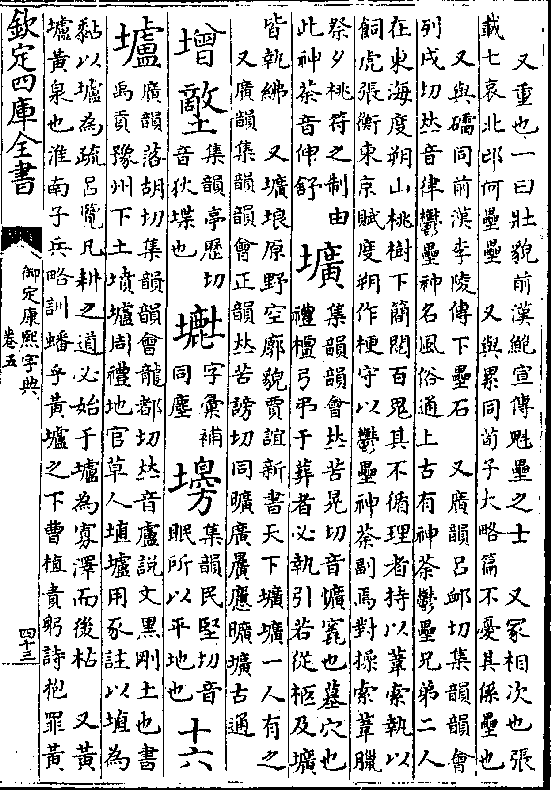 又重也一曰壯貌前漢鮑宣傳魁壘之士 又冢相次也張
載七哀北邙何壘壘 又與累同荀子大略篇不憂其係壘也
又與礧同前漢李陵傳下壘石 又廣韻呂卹切集韻韻會
列戌切𠀤音律鬱壘神名風俗通上古有神荼鬱壘兄弟二人
在東海度朔山桃樹下簡閱百鬼其不循理者持以葦索執以
飼虎張衡東京賦度朔作梗守以鬱壘神荼副焉對操索葦臘
祭夕桃符之制由
此神荼音伸舒
壙
集韻韻會𠀤苦晃切音懭窀也墓穴也
禮檀弓弔于葬者必執引若從柩及壙
皆執紼 又壙埌原野空廓貌賈誼新書天下壙壙一人有之
又廣韻集韻韻會正韻𠀤苦謗切同曠廣應曠壙古通
增
集韻亭歷切
音狄堞也
字彙補
同塵
集韻民堅切音
眠所以平地也
十六
壚
廣韻落胡切集韻韻會龍都切𠀤音盧說文黑剛土也書
禹貢豫州下土墳壚周禮地官草人埴壚用豕註以埴為
黏以壚為疏呂覽凡耕之道必始于壚為寡澤而後枯 又黃
壚黃泉也淮南子兵略訓蟠乎黃壚之下曹植責躬詩抱罪黃
欽定四庫全書
御定康熙字典
卷五
四十三